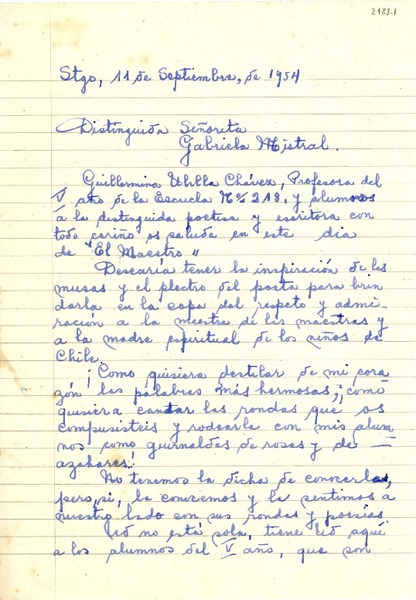 2483.1
Stgo, 11 de Septiembre, de 1954
Distinguida Señorita
Gabriela Mistral.
Guillermina Ubilla Chávez, Profesora del
V año de la Escuela Nº 218. y alumnos
a la distinguida poetisa y escritora con
todo cariño os saluda en este dia
de "El Maestro"
Desearía tener la inspiración de les
musas y el plectro del poeta para brin
darla en la copa del respeto y admi-
ración a la mestra de les maestras y
a la madre espiritual de los niños de
Chile.
¡Como quisiera destilar de mi cora
zón les palabras más hermosas,; como
quisiera cantar las rondas que os
compusisteis y rodearla con mis alum
nos como guirnaldas de rosas y de —
azahares!
No tenemos la dicha de conocerla,
pero, si, la conocemos y la sentimos a
nuestro lado con sus rondas y poesías.
Ud no está sola, tiene Ud aquí
a los alumnos del V año, que son